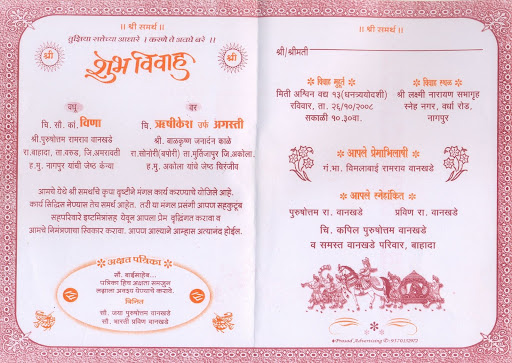 ॥ श्री समर्थ ॥
तुझिया सत्तेच्या आधारे । करणे ते अवघे बरे ।।
श्री
श्री
शुभ विवाह
वधू
चि. सौ. कां. विणा
श्री.पुरुषोत्तम रामराव वानखडे
रा.बाहादा, ता.वरुड, जि.अमरावती
ह.मु. नागपूर यांची जेष्ठ कन्या
वर
चि. ऋषीकेश उर्फ अगस्ती
श्री. बाळकृष्ण जनार्दन काळे
रा.सोनोरी(बपोरी) ता.मुर्तिजापूर जि.अकोला.
ह.मु. अकोला यांचे जेष्ठ चिरंजीव
आमचे येथे श्री समर्थाचे कृपा दृष्टीने मंगल कार्य करण्याचे योजिले आहे.
कार्य सिद्धिस नेण्यास तेच समर्थ आहेत. तरी या मंगल प्रसंगी आपण सहकुटूंब
सहपरिवारे इष्टमित्रांसह येवून आपला प्रेम वृद्धिंगत करावा व
आमचे निमंत्रणाचा स्विकार करावा. आपण आल्याने आम्हास अत्यानंद होईल.
अक्षत पत्रिका
सौ. बाईसाहेब...
पत्रिका हिच अक्षता समजून
लग्नाला अवश्य येण्याचे करावे.
विनित
सौ. जया पुरुषोत्तम वानखडे
सौ. भारती प्रविण वानखडे
॥ श्री समर्थ ॥
श्री/श्रीमती
विवाह मुहूर्त
मिती अश्विन वद्य १३(धनत्रयोदशी)
रविवार, ता. २६/१०/२००८
सकाळी १०.३०वा.
विवाह स्थळ
श्री लक्ष्मी नारायण सभागृह
स्नेह नगर, वर्धा रोड,
नागपूर
आपले प्रेमाभिलाषी
गं.भा. विमलाबाई रामराव वानखडे
आपले स्नेहांकित
पुरुषोत्तम रा. वानखडे प्रविण रा. वानखडे
चि. कपिल पुरुषोत्तम वानखडे
व समस्त वानखडे परिवार, बाहादा
Prasad Advertising